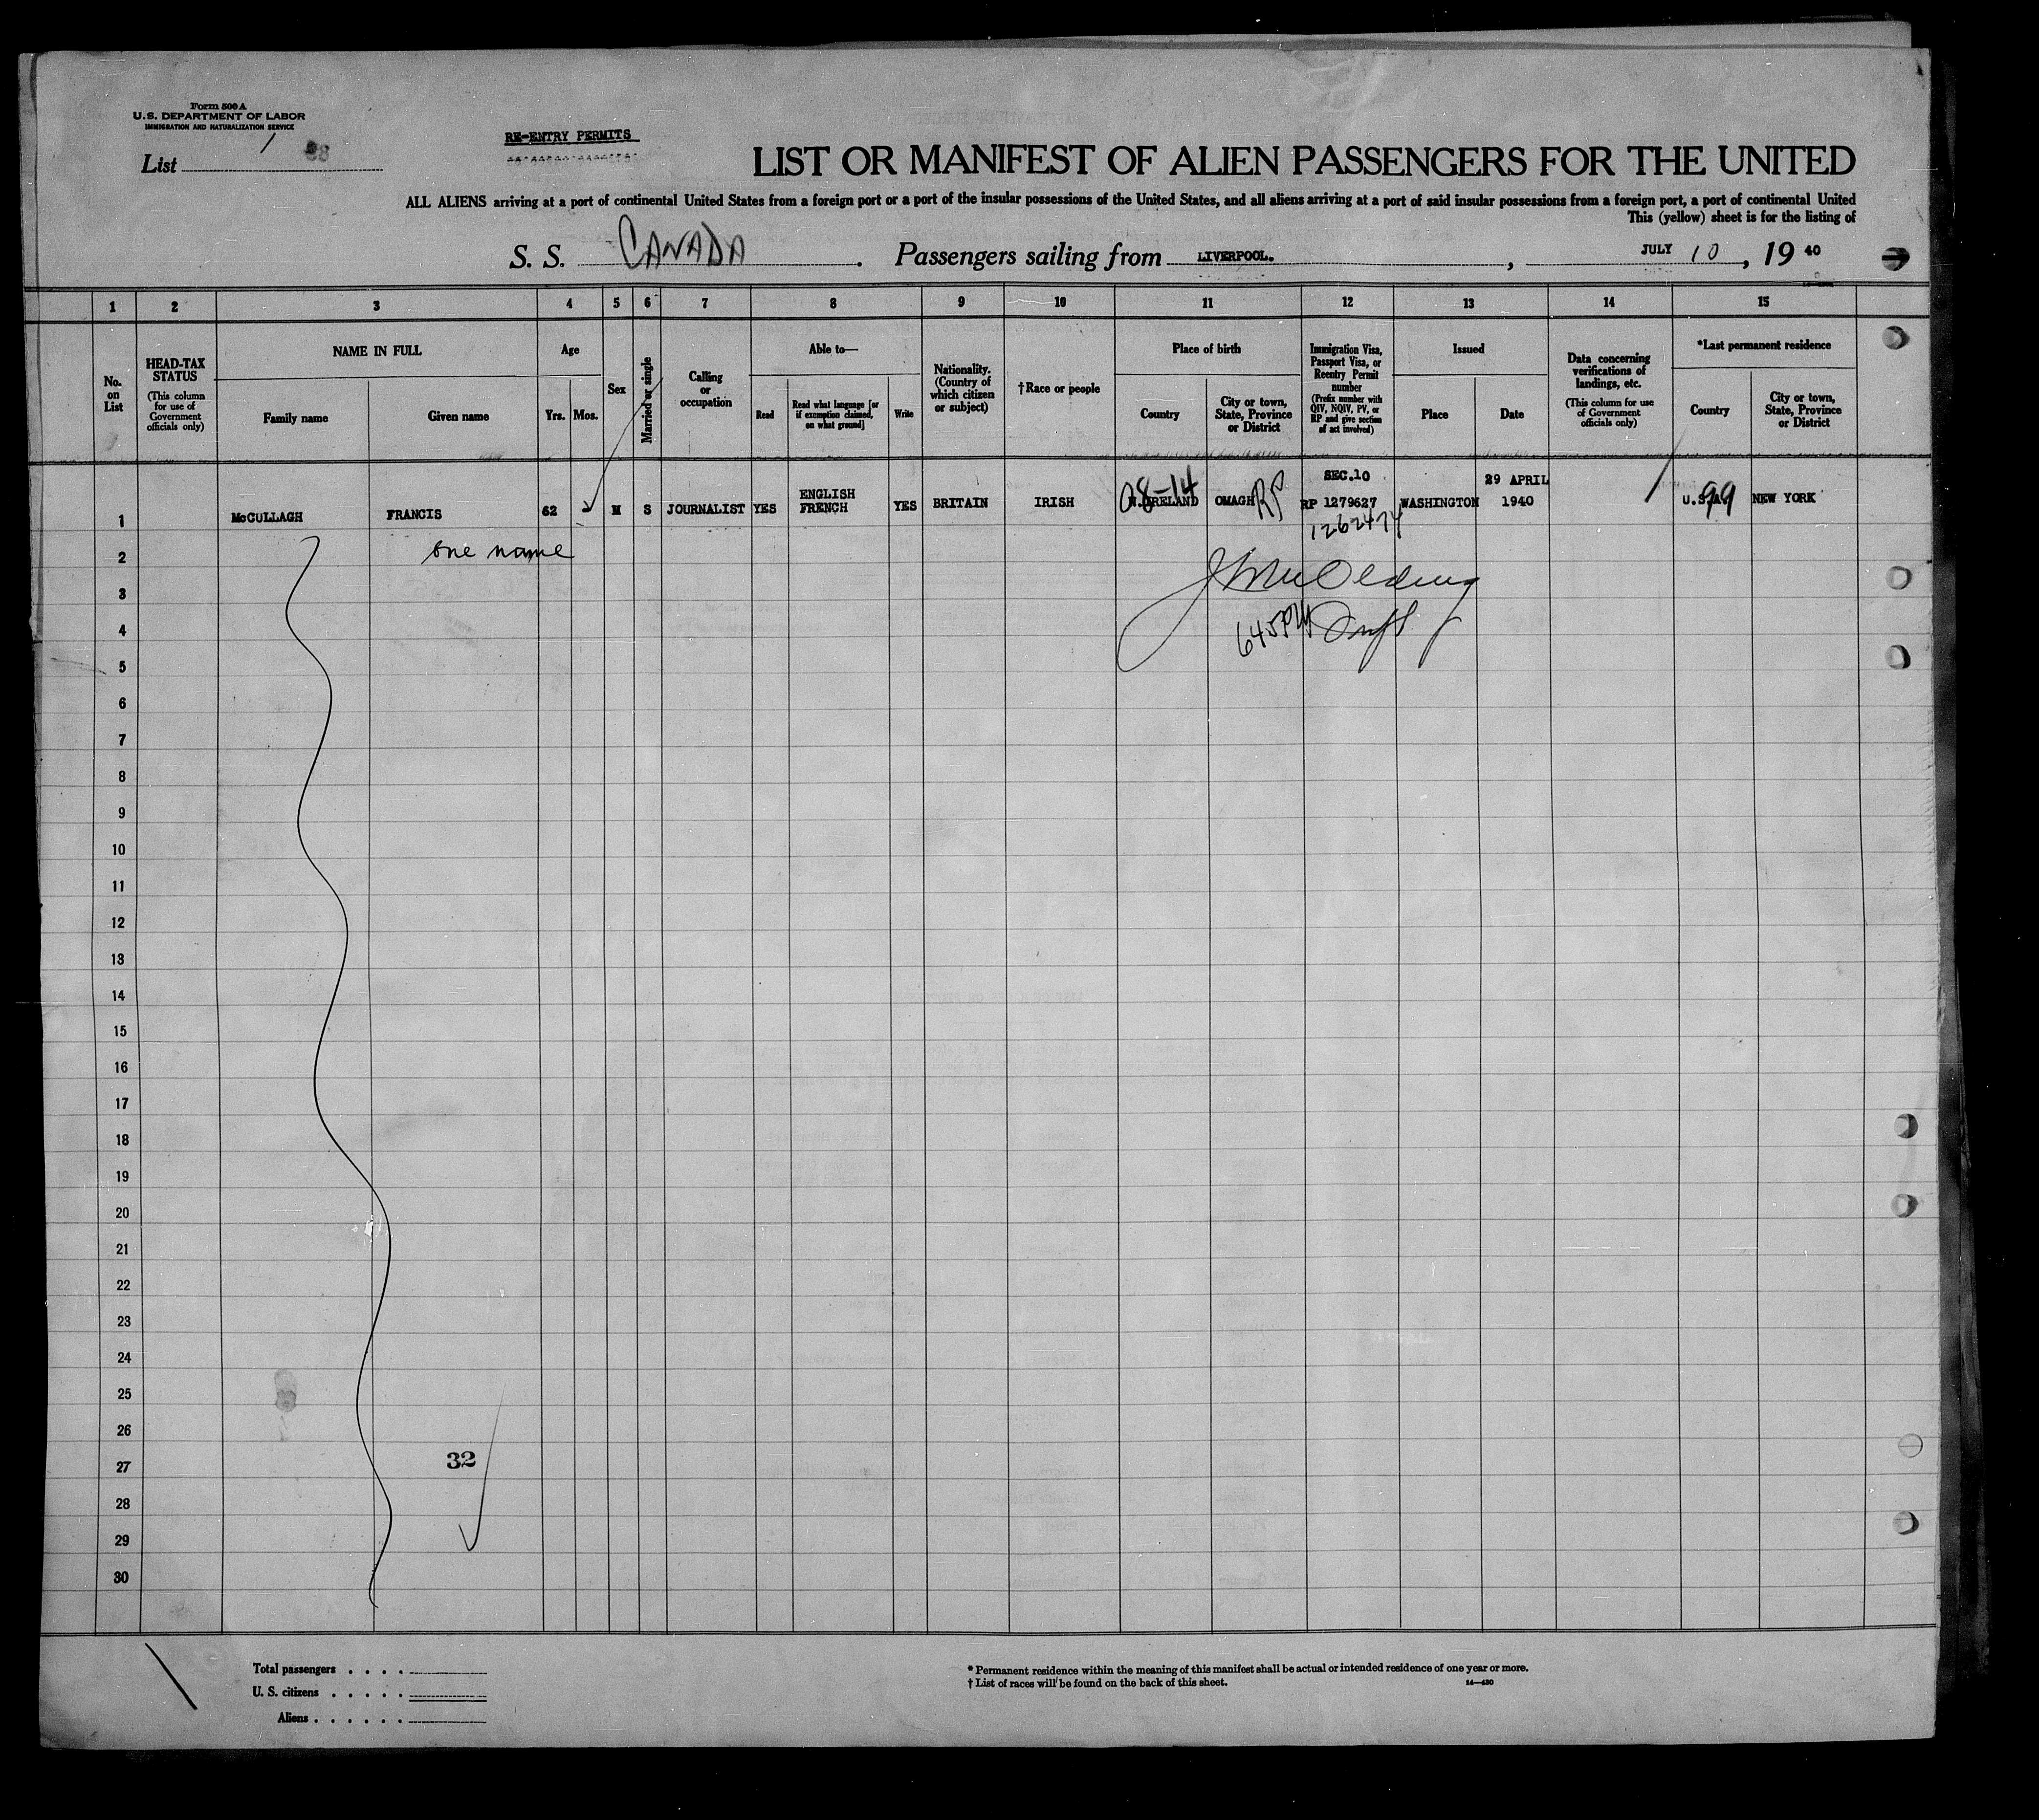 Form 500 A
U.S. DEPARTMENT OF LABOR
IMMIGRATION AND NATURALIZATION SERVICE
List 1
RE-ENTRY PERMITS
LIST OR MANIFEST OF ALIEN PASSENGERS FOR THE UNITED
ALL ALIENS arriving at a port of continental United States from a foreign port or a port of the insular possessions of the United States, and all aliens arriving at a port of said insular possessions from a foreign port, a port of continental United
This (yellow) sheet is for the listing of
S. S. CANADA. Passengers sailing from LIVERPOOL., JULY 10, 19 40
1 2 3 4 5 6 7 8 9 10 11 12 13 14 15
No. on List
HEAD-TAX STATUS
(This column for use of Government officials only)
NAME IN FULL
Family name
Given name
Age
Yrs.
Mos.
Sex
Married or single
Calling or occupation
Able to—
Read
Read what language [or if exemption claimed, on what ground]
Write
Nationality. (Country of which citizen or subject)
†Race or people
Place of birth
Country
City or town, State, Province or District
Immigration Visa, Passport Visa, or Reentry Permit number
(Prefix number with QIV, NQIV, PV, or RP and give section of act involved)
Issued
Place
Date
Data concerning verifications of landings, etc.
(This column for use of Government officials only)
*Last permanent residence
Country
City or town, State, Province or District
1 McCULLAGH FRANCIS 62 M S JOURNALIST YES ENGLISH FRENCH YES BRITAIN IRISH N.IRELAND OMAGH SEC.10 RP 1279627 WASHINGTON 29 APRIL 1940 U.S.A. NEW YORK
08-14 RP 99
1262474
2 one name
3
4 645PM
5
6
7
8
9
10
11
12
13
14
15
16
17
18
19
20
21
22
23
24
25
26
27 32
28
29
30
Total passengers . . . .
U. S. citizens . . . . .
Aliens . . . . . .
* Permanent residence within the meaning of this manifest shall be actual or intended residence of one year or more.
† List of races will be found on the back of this sheet.
14—430